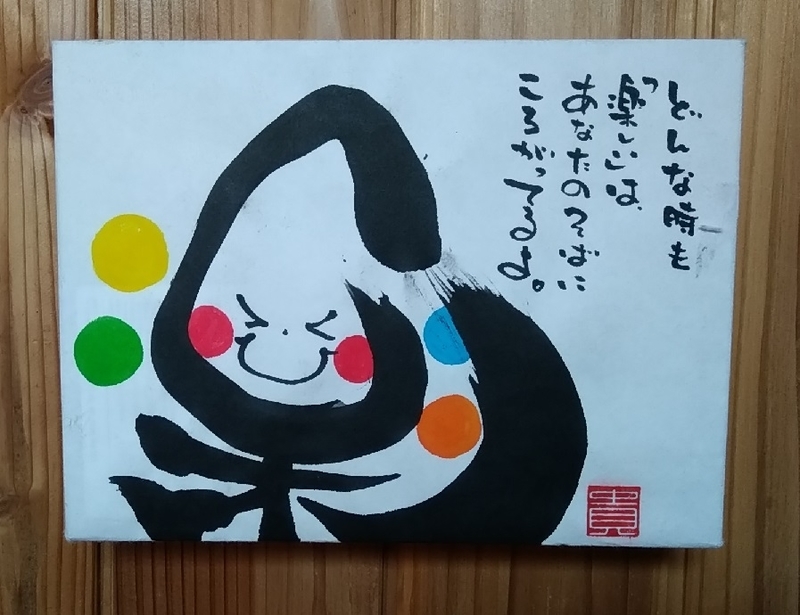 どんな時も
「楽しい」は、
あなたのそばに
ころがってるよ。
貴